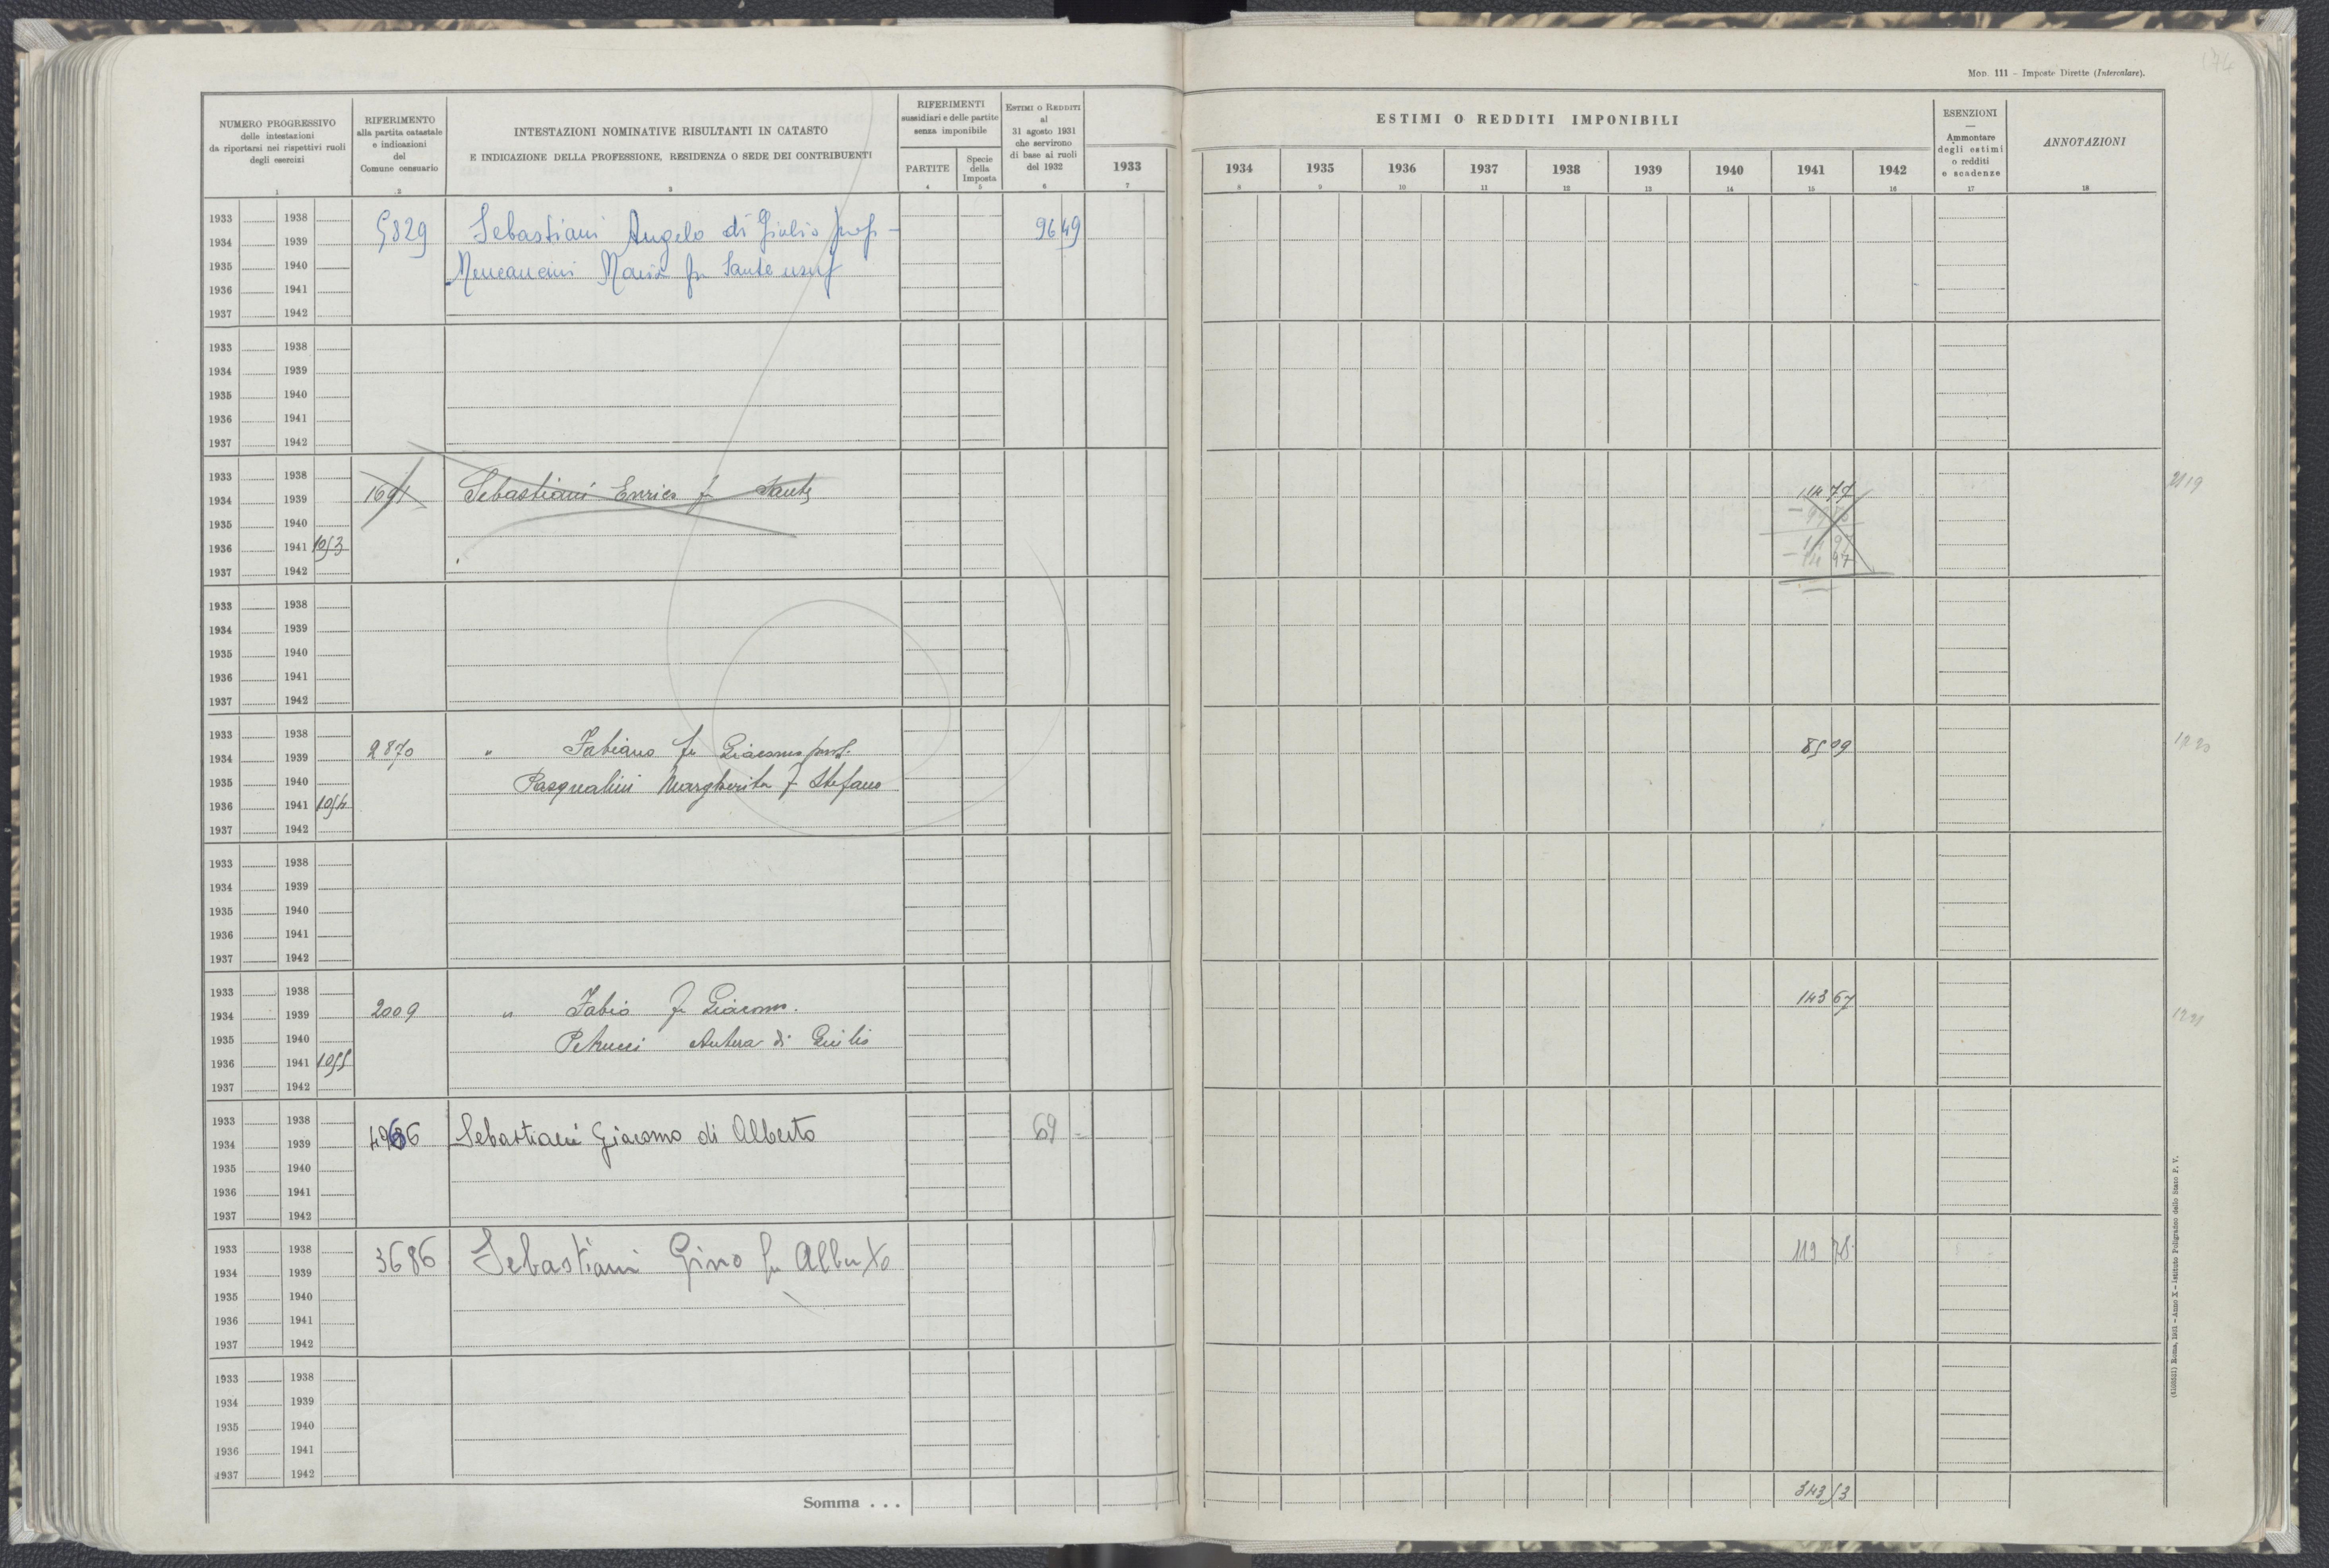 174
Mod. 111 - Imposte Dirette (Intercalare).
NUMERO PROGRESSIVO
delle intestazioni
da riportarsi nei rispettivi ruoli
degli esercizi
1
RIFERIMENTO
alla partita catastale
e indicazioni
del
Comune censuario
2
INTESTAZIONI NOMINATIVE RISULTANTI IN CATASTO
E INDICAZIONE DELLA PROFESSIONE, RESIDENZA O SEDE DEI CONTRIBUENTI
3
RIFERIMENTI
sussidiari e delle partite
senza imponibile
PARTITE
4
Specie
della
Imposta
5
Estimi o Redditi
al
31 agosto 1931
che servirono
di base ai ruoli
del 1932
6
1933
7
ESTIMI O REDDITI IMPONIBILI
1934 1935 1936 1937 1938 1939 1940 1941 1942
8 9 10 11 12 13 14 15 16
ESENZIONI
Ammontare
degli estimi
o redditi
e scadenze
17
ANNOTAZIONI
18
1933 1938
1934 1939 5829 Sebastiani Angelo di Giulio prop - 96 49
1935 1940 Mencancini Maria fu Sante usuf
1936 1941
1937 1942
1933 1938
1934 1939
1935 1940
1936 1941
1937 1942
1933 1938
1934 1939 1691 Sebastiani Enrico fu Sante 77
1935 1940
1936 1941 1053
1937 1942
1933 1938
1934 1939
1935 1940
1936 1941
1937 1942
1933 1938
1934 1939 2870 " Fabiano fu Giacomo prop. 85 09
1935 1940 Pasqualini Margherita fu Stefano
1936 1941 1054
1937 1942
1933 1938
1934 1939
1935 1940
1936 1941
1937 1942
1933 1938
1934 1939 2009 " Fabio fu Giacomo. 143 67
1935 1940 Petrucci Antera di Giulio
1936 1941 1055
1937 1942
1933 1938
1934 1939 Sebastiani Giacomo di Alberto 69 -
1935 1940
1936 1941
1937 1942
1933 1938
1934 1939 3686 Sebastiani Gino fu Alberto 119 78
1935 1940
1936 1941
1937 1942
1933 1938
1934 1939
1935 1940
1936 1941
1937 1942
Somma . . . 343 53
Roma, 1931 - Anno X - Istituto Poligrafico dello Stato P. V.